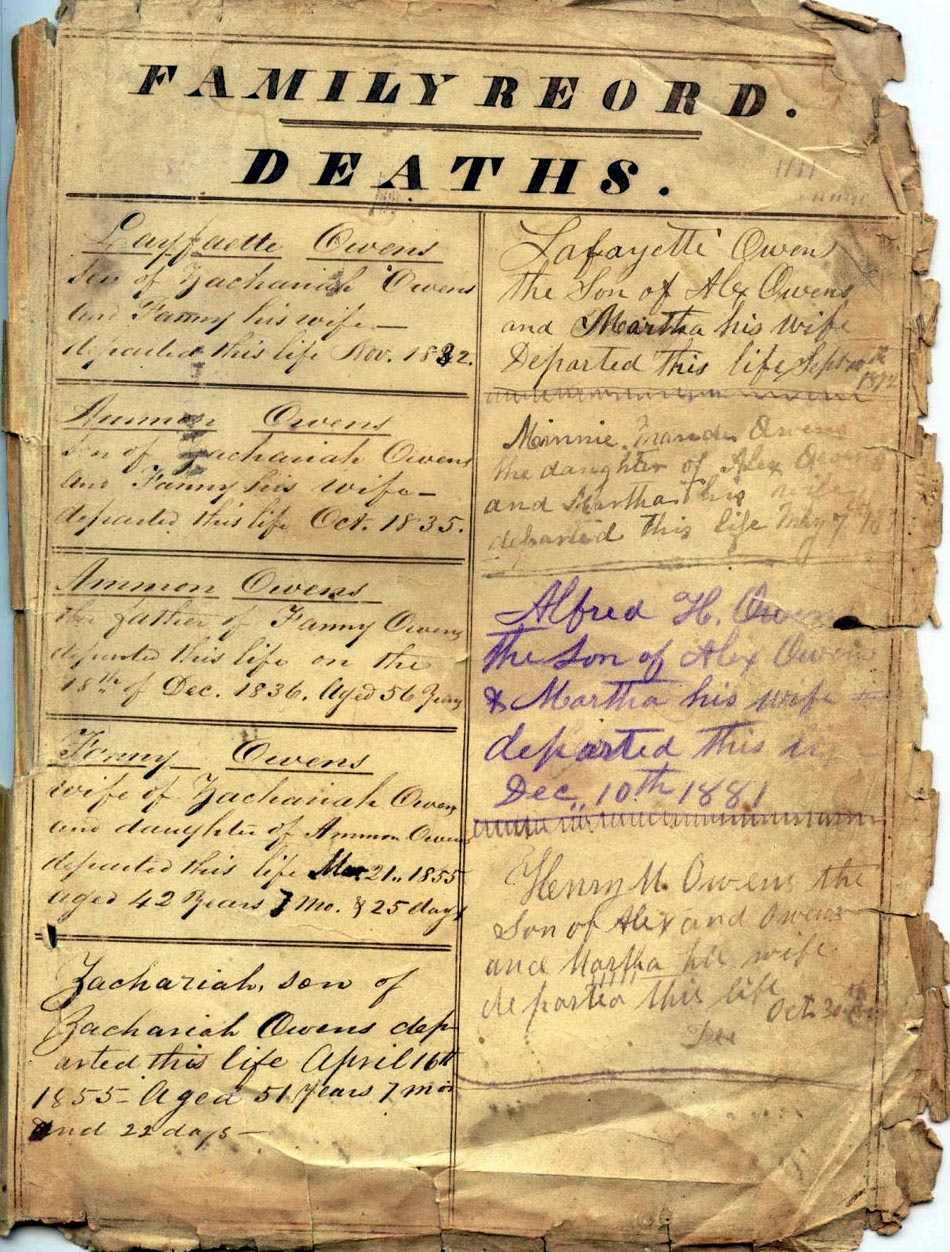 FAMILY REORD.
DEATHS.
Layfaette Owens
son of Zachariah Owens
and Fanny his wife
departed this life Nov. 1832.
Ammon Owens
son of Zachariah Owens
and Fanny his wife
departed this life Oct. 1835.
Ammon Owens
the father of Fanny Owens
departed this life on the
18th of Dec. 1836. Aged 56 Years
Fanny Owens
wife of Zachariah Owens
and daughter of Ammon Owens
departed this life Mar. 21., 1855
aged 42 Years 7 mo. & 25 days
Zachariah, son of
Zachariah Owens dep-
arted this life April 16th
1855 - Aged 51 Years 7 mos
and 22 days -
Lafayette Owens
the Son of Alex Owens
and Martha his wife
Departed this life Sept
Minnie Owens
the daughter of Alex Owens
and Martha his wife
departed this life May 7
Alfred H. Owens
the Son of Alex Owens
& Martha his wife
departed this
Dec., 10th 1881
Henry M. Owens the
Son of Alex and Owens
and Martha his wife
departed this life
Oct. 30